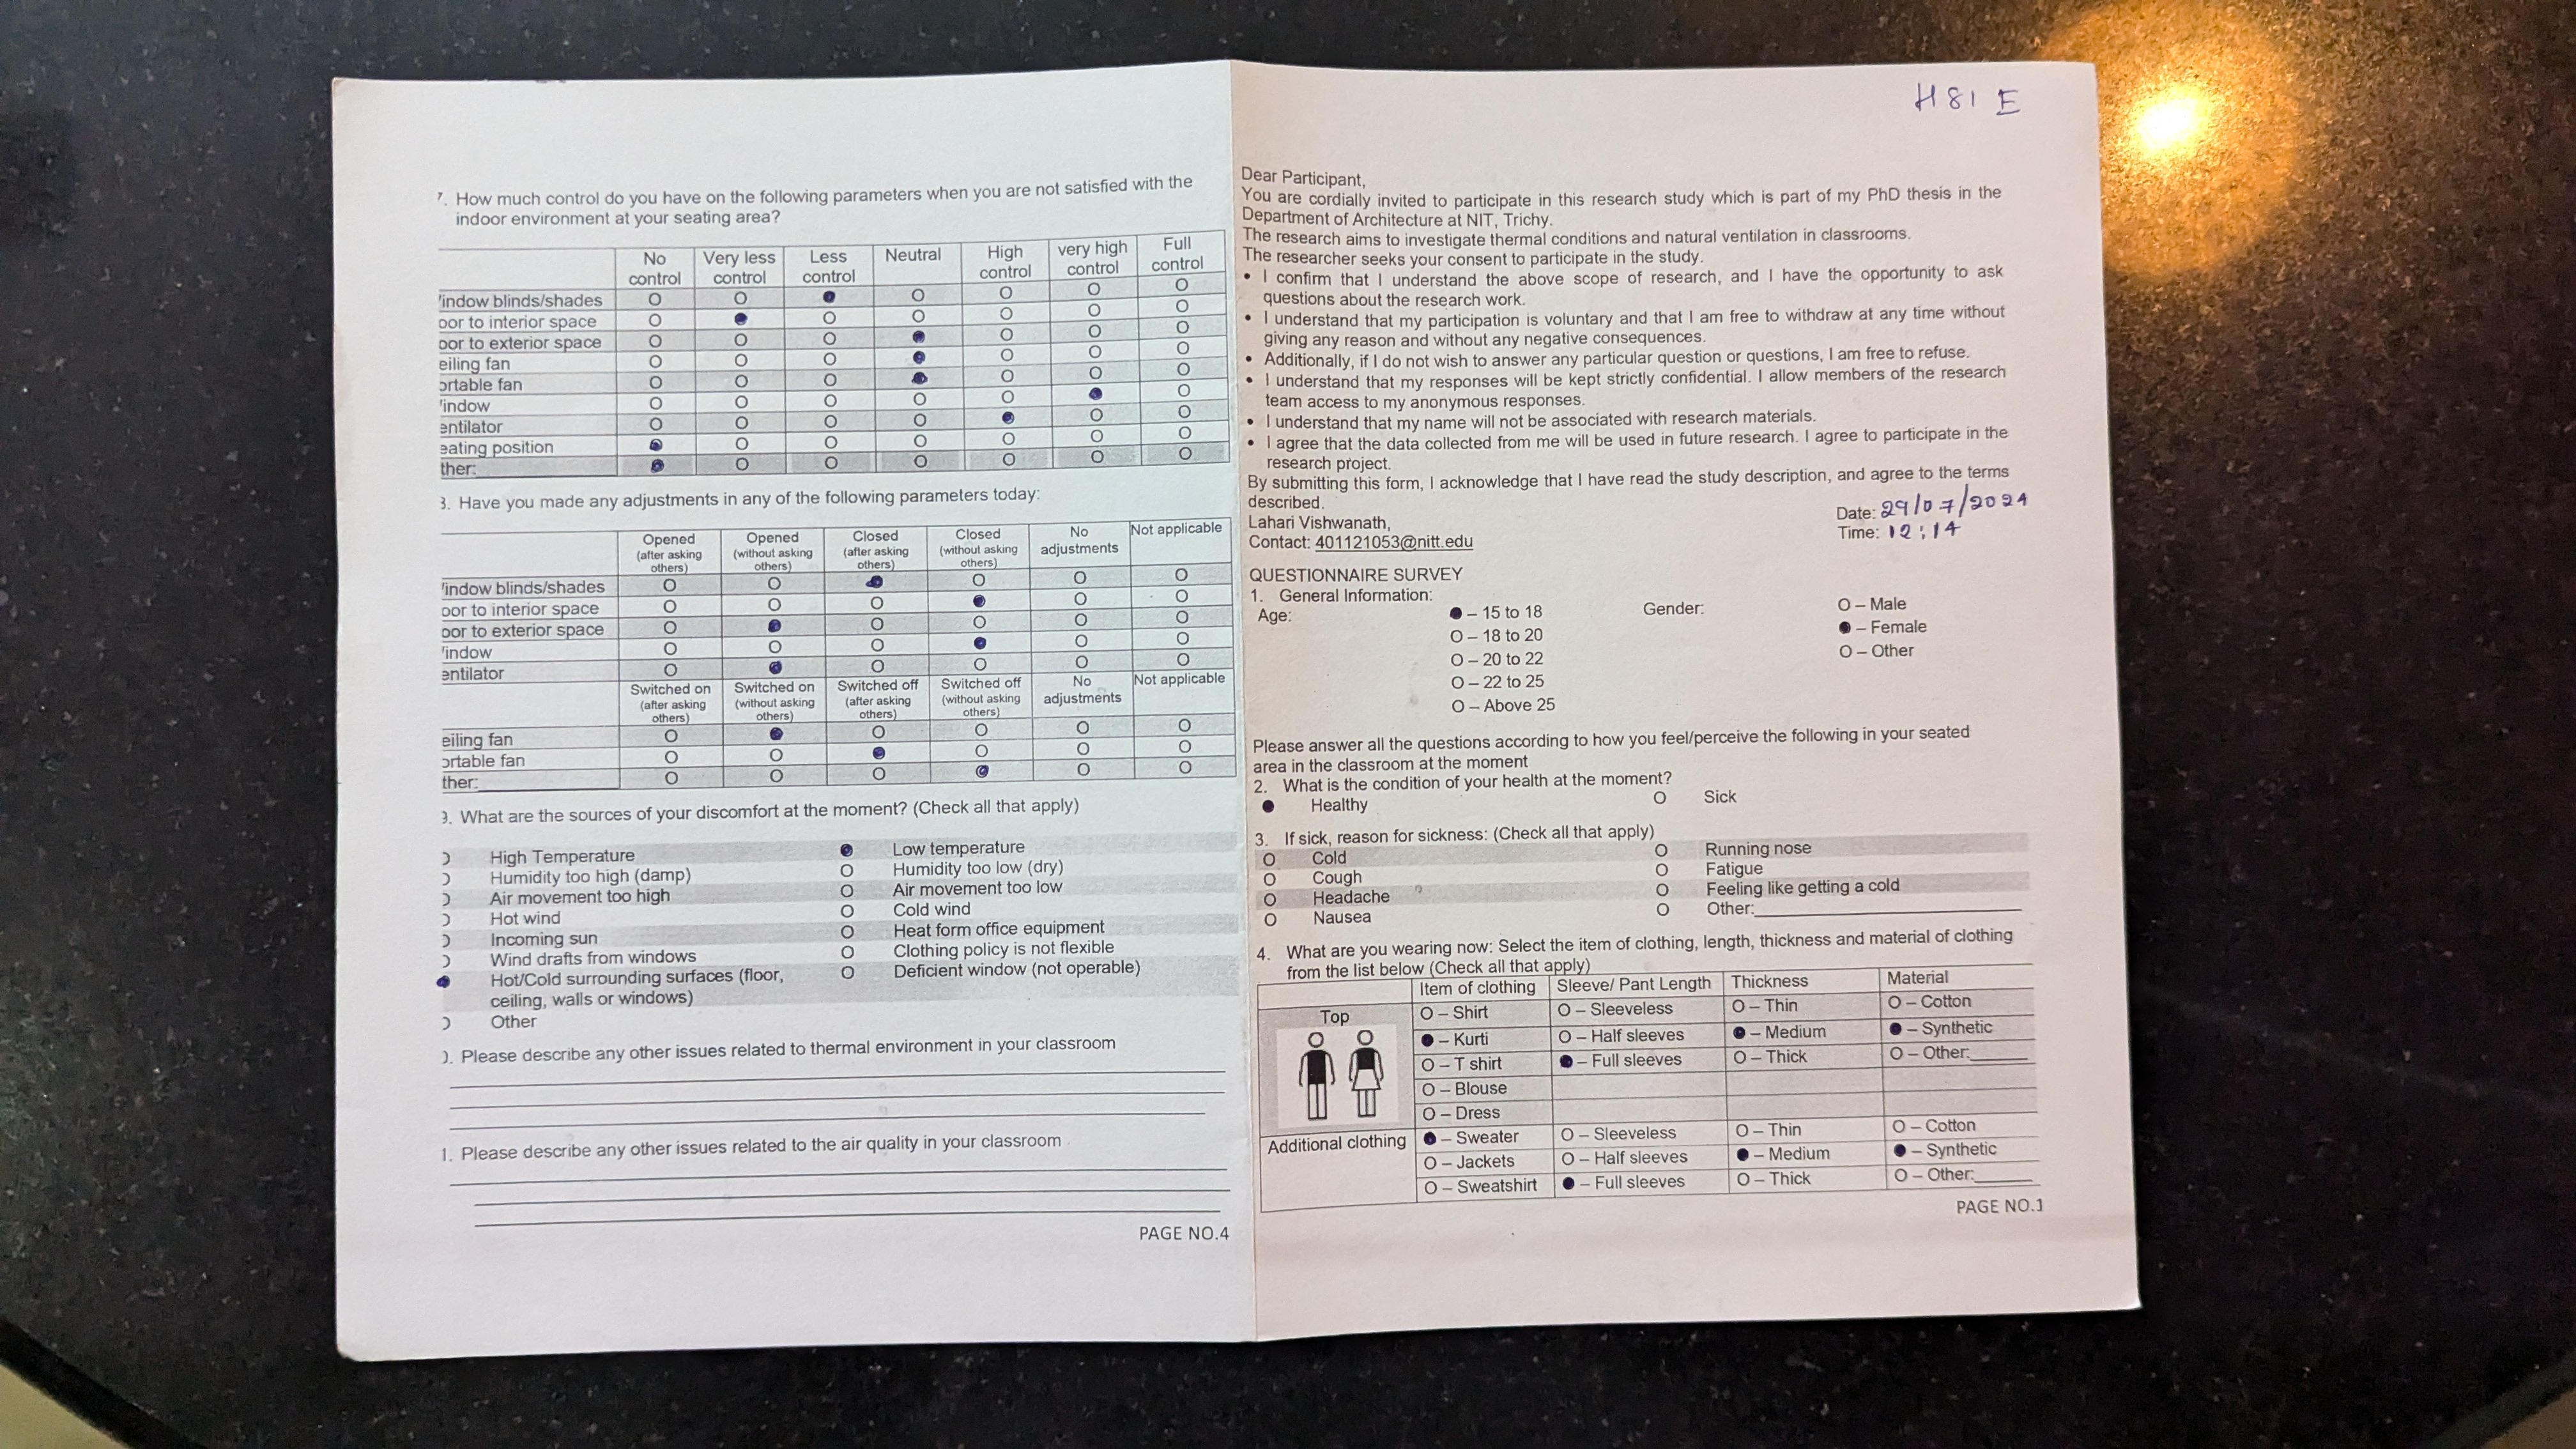 7. How much control do you have on the following parameters when you are not satisfied with the
indoor environment at your seating area?
No control Very less control Less control Neutral High control very high control Full control
indow blinds/shades O O ● O O O O
oor to interior space O ● O O O O O
oor to exterior space O O O ● O O O
eiling fan O O O ● O O O
ortable fan O O O ● O O O
indow O O O O O ● O
entilator O O O O ● O O
eating position ● O O O O O O
ther: ● O O O O O O
3. Have you made any adjustments in any of the following parameters today:
Opened (after asking others) Opened (without asking others) Closed (after asking others) Closed (without asking others) No adjustments Not applicable
indow blinds/shades O O ● O O O
oor to interior space O O O ● O O
oor to exterior space O ● O O O O
indow O O O ● O O
entilator O ● O O O O
Switched on (after asking others) Switched on (without asking others) Switched off (after asking others) Switched off (without asking others) No adjustments Not applicable
eiling fan O ● O O O O
ortable fan O O ● O O O
ther: O O O ● O O
9. What are the sources of your discomfort at the moment? (Check all that apply)
High Temperature ● Low temperature
Humidity too high (damp) O Humidity too low (dry)
Air movement too high O Air movement too low
Hot wind O Cold wind
Incoming sun O Heat form office equipment
Wind drafts from windows O Clothing policy is not flexible
● Hot/Cold surrounding surfaces (floor, O Deficient window (not operable)
ceiling, walls or windows)
Other
). Please describe any other issues related to thermal environment in your classroom
1. Please describe any other issues related to the air quality in your classroom
PAGE NO.4
H81 E
Dear Participant,
You are cordially invited to participate in this research study which is part of my PhD thesis in the
Department of Architecture at NIT, Trichy.
The research aims to investigate thermal conditions and natural ventilation in classrooms.
The researcher seeks your consent to participate in the study.
• I confirm that I understand the above scope of research, and I have the opportunity to ask
questions about the research work.
• I understand that my participation is voluntary and that I am free to withdraw at any time without
giving any reason and without any negative consequences.
• Additionally, if I do not wish to answer any particular question or questions, I am free to refuse.
• I understand that my responses will be kept strictly confidential. I allow members of the research
team access to my anonymous responses.
• I understand that my name will not be associated with research materials.
• I agree that the data collected from me will be used in future research. I agree to participate in the
research project.
By submitting this form, I acknowledge that I have read the study description, and agree to the terms
described.
Lahari Vishwanath,
Contact: 401121053@nitt.edu
Date: 29/07/2024
Time: 12:14
QUESTIONNAIRE SURVEY
1. General Information:
Age: ● – 15 to 18 Gender: O – Male
O – 18 to 20 ● – Female
O – 20 to 22 O – Other
O – 22 to 25
O – Above 25
Please answer all the questions according to how you feel/perceive the following in your seated
area in the classroom at the moment
2. What is the condition of your health at the moment?
● Healthy O Sick
3. If sick, reason for sickness: (Check all that apply)
O Cold O Running nose
O Cough O Fatigue
O Headache O Feeling like getting a cold
O Nausea O Other:
4. What are you wearing now: Select the item of clothing, length, thickness and material of clothing
from the list below (Check all that apply)
Item of clothing Sleeve/ Pant Length Thickness Material
Top O – Shirt O – Sleeveless O – Thin O – Cotton
● – Kurti O – Half sleeves ● – Medium ● – Synthetic
O – T shirt ● – Full sleeves O – Thick O – Other:
O – Blouse
O – Dress
Additional clothing ● – Sweater O – Sleeveless O – Thin O – Cotton
O – Jackets O – Half sleeves ● – Medium ● – Synthetic
O – Sweatshirt ● – Full sleeves O – Thick O – Other:
PAGE NO.1